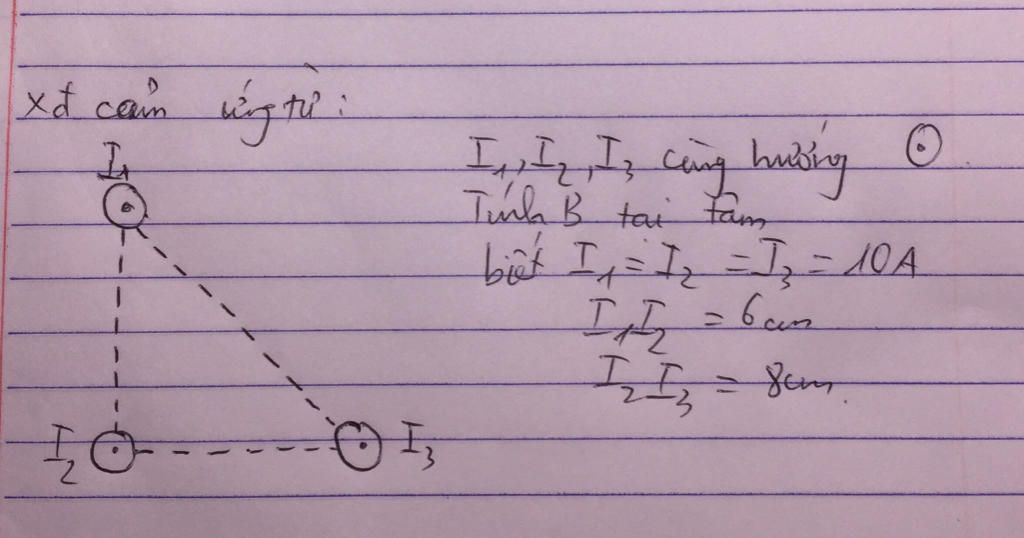 xđ cảm ứng từ :
I₁
I₁, I₂, I₃ cùng hướng ⊙.
Tính B tại tâm
biết I₁ = I₂ = I₃ = 10A
I₁I₂ = 6cm
I₂I₃ = 8cm.
I₂ I₃